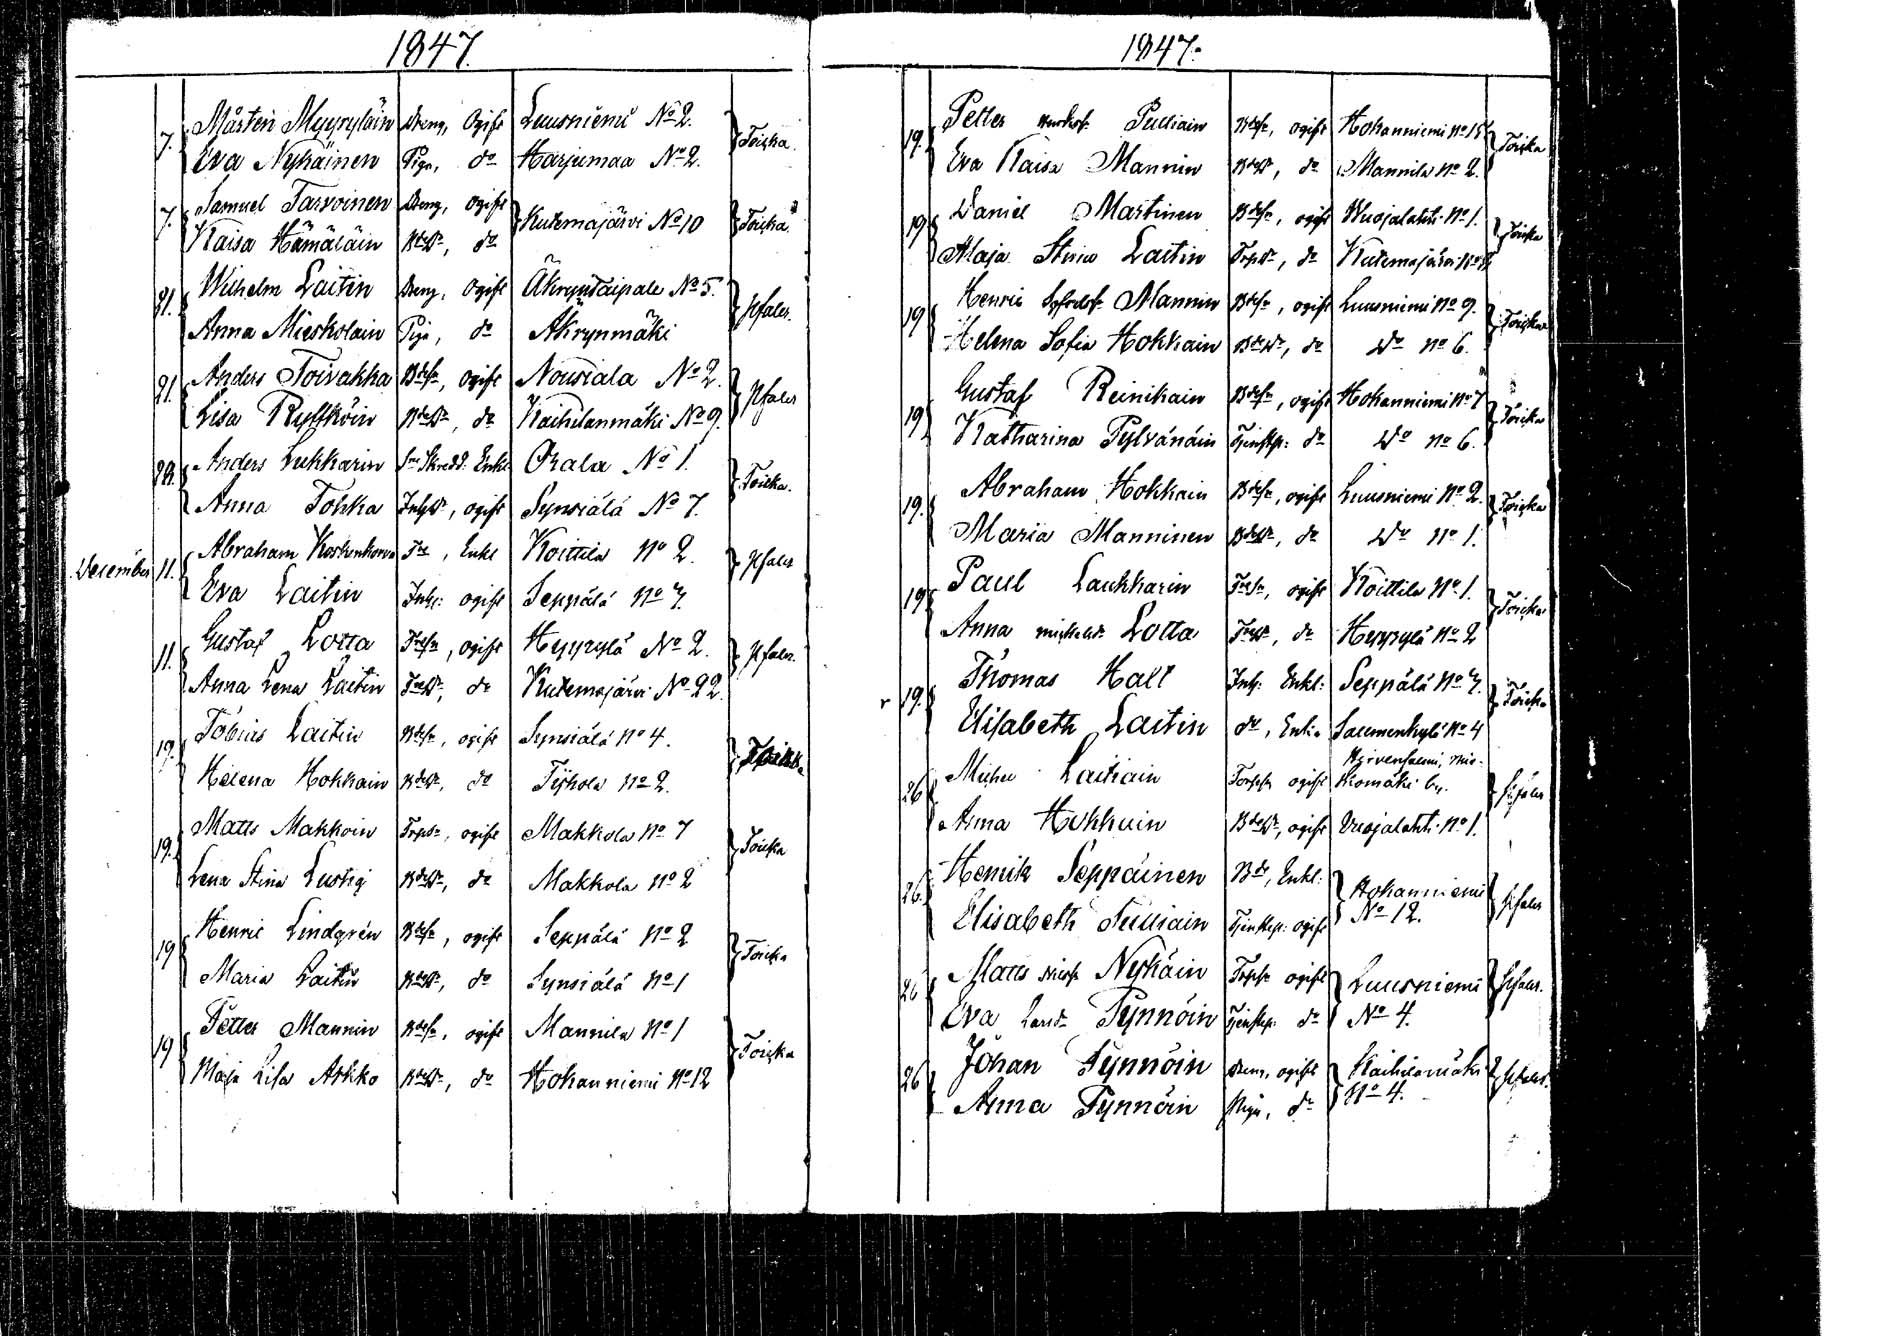 1847.
7. Mårten Myyryläin Dreng, Ogift Luusniemi No 2. Toicka.
Eva Nykäinen Piga, do Harjumaa No 2.
7. Samuel Tarvoinen Dreng, ogift Kutemajärvi No 10 Toicka
Kaisa Hämäläin BdeDr, do
21. Wilhelm Laitin Dreng, Ogift Äkryntaipale No 5. Pfaler.
Anna Mieskolain Piga, do Äkrynmäki
21. Anders Toivakka Bdesn, ogift Nousiala No 2. Pfaler
Lisa Ryttköin BdeDr, do Kaihilanmäki No 9.
Anders Lukkarin Sn Skredd. Enkl. Orala No 1. Toicka.
Anna Tohka InhDr, ogift Synsiälä No 7.
December 11. Abraham Koskenkorva Enkl Koittila No 2. Pfaler
Eva Laitin Inh: ogift Seppälä No 7.
11. Gustaf Lotta ogift Heyrylä No 2. Pfaler.
Anna Lena Laitin do Kutemajärvi No 22.
19. Tobias Laitin Bdesn, ogift Synsiälä No 4. Toicka
Helena Hokkain BdeDr, do Tyhola No 2.
19. Matts Makkoin Torpsn, ogift Makkola No 7 Toicka
Lena Stina Lustig BdeDr, do Makkola No 2
19 Henric Lindgrén Bdesn, ogift Seppälä No 2 Toicka
Maria Laitin BdeDr, do Synsiälä No 1
19 Petter Mannin Bdesn, ogift Mannila No 1 Toicka
Maja Lisa Asko BdeDr, do Hokanniemi No 12
1847.
19. Petter Pulliain Bdesn, ogift Hokanniemi No 15 Toicka
Eva Kaisa Mannin BdeDr, do Mannila No 2.
19 Daniel Martinen Bdesn, ogift Wuojalahti No 1. Toicka
Maja Stina Laitin TrpDr, do Kutemajärvi
19 Henric Mannin Bdesn, ogift Luusniemi No 9. Toicka
Helena Sofia Hokkain BdeDr, do Do No 6.
19 Gustaf Reinikain Bdesn, ogift Hokanniemi No 7 Toicka
Katharina Pylvänäin Tjenstep: do Do No 6.
19. Abraham Hokkain Bdesn, ogift Luusniemi No 2 Toicka
Maria Manninen BdeDr, do Do No 1.
19 Paul Laukkarin ogift Koittila No 1. Toicka
Anna Lotta do Heyrylä No 2
19. Thomas Hall Inh: Enkl: Seppälä No 7. Toicka
Elisabeth Laitin do, Enka Salmenkylä No 4
Hirvensalmi,
26 Laitiain ogift by. Pfaler
Anna Hokkain BdeDr, ogift Vuojalahti No 1.
26. Henrik Seppäinen Bde, Enkl: Hokanniemi Pfaler
Elisabeth Pulliain Tjenstep: ogift No 12.
26 Matts Nykäin Torpsn ogift Luusniemi Pfaler.
Eva Tynnöin Tjenstep: do No 4.
26 Johan Tynnöin Dreng, ogift Kaihilamäki Pfaler.
Anna Tynnöin Piga, do No 4.